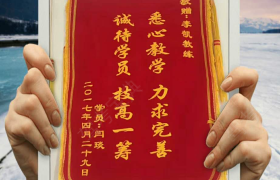 敬赠：李凯教练
悉心教学 力求完善
诚待学员 技高一筹
学员：闫琰
二〇一七年四月二十九日